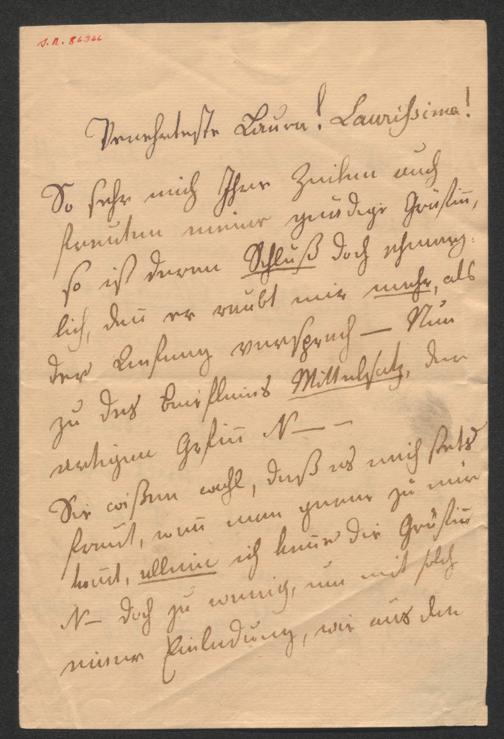 J.N. 86366
Verehrteste Laura! Laurissima!
So sehr mich Ihre Zeilen auch
freuten meine gnädige Gräfin,
so ist deren Schluß doch schmerz-
lich, den er raubt mir mehr, als
der Anfang versprach — Nun
zu des Briefleins Mittelsatz, der
artigen Gräfin N——
Sie wißen wohl, daß es mich stets
freut, wenn man gerne zu mir
komt, allein ich kenne die Gräfin
N— doch zu wenig, um mit solch
einer Einladung, wie aus den